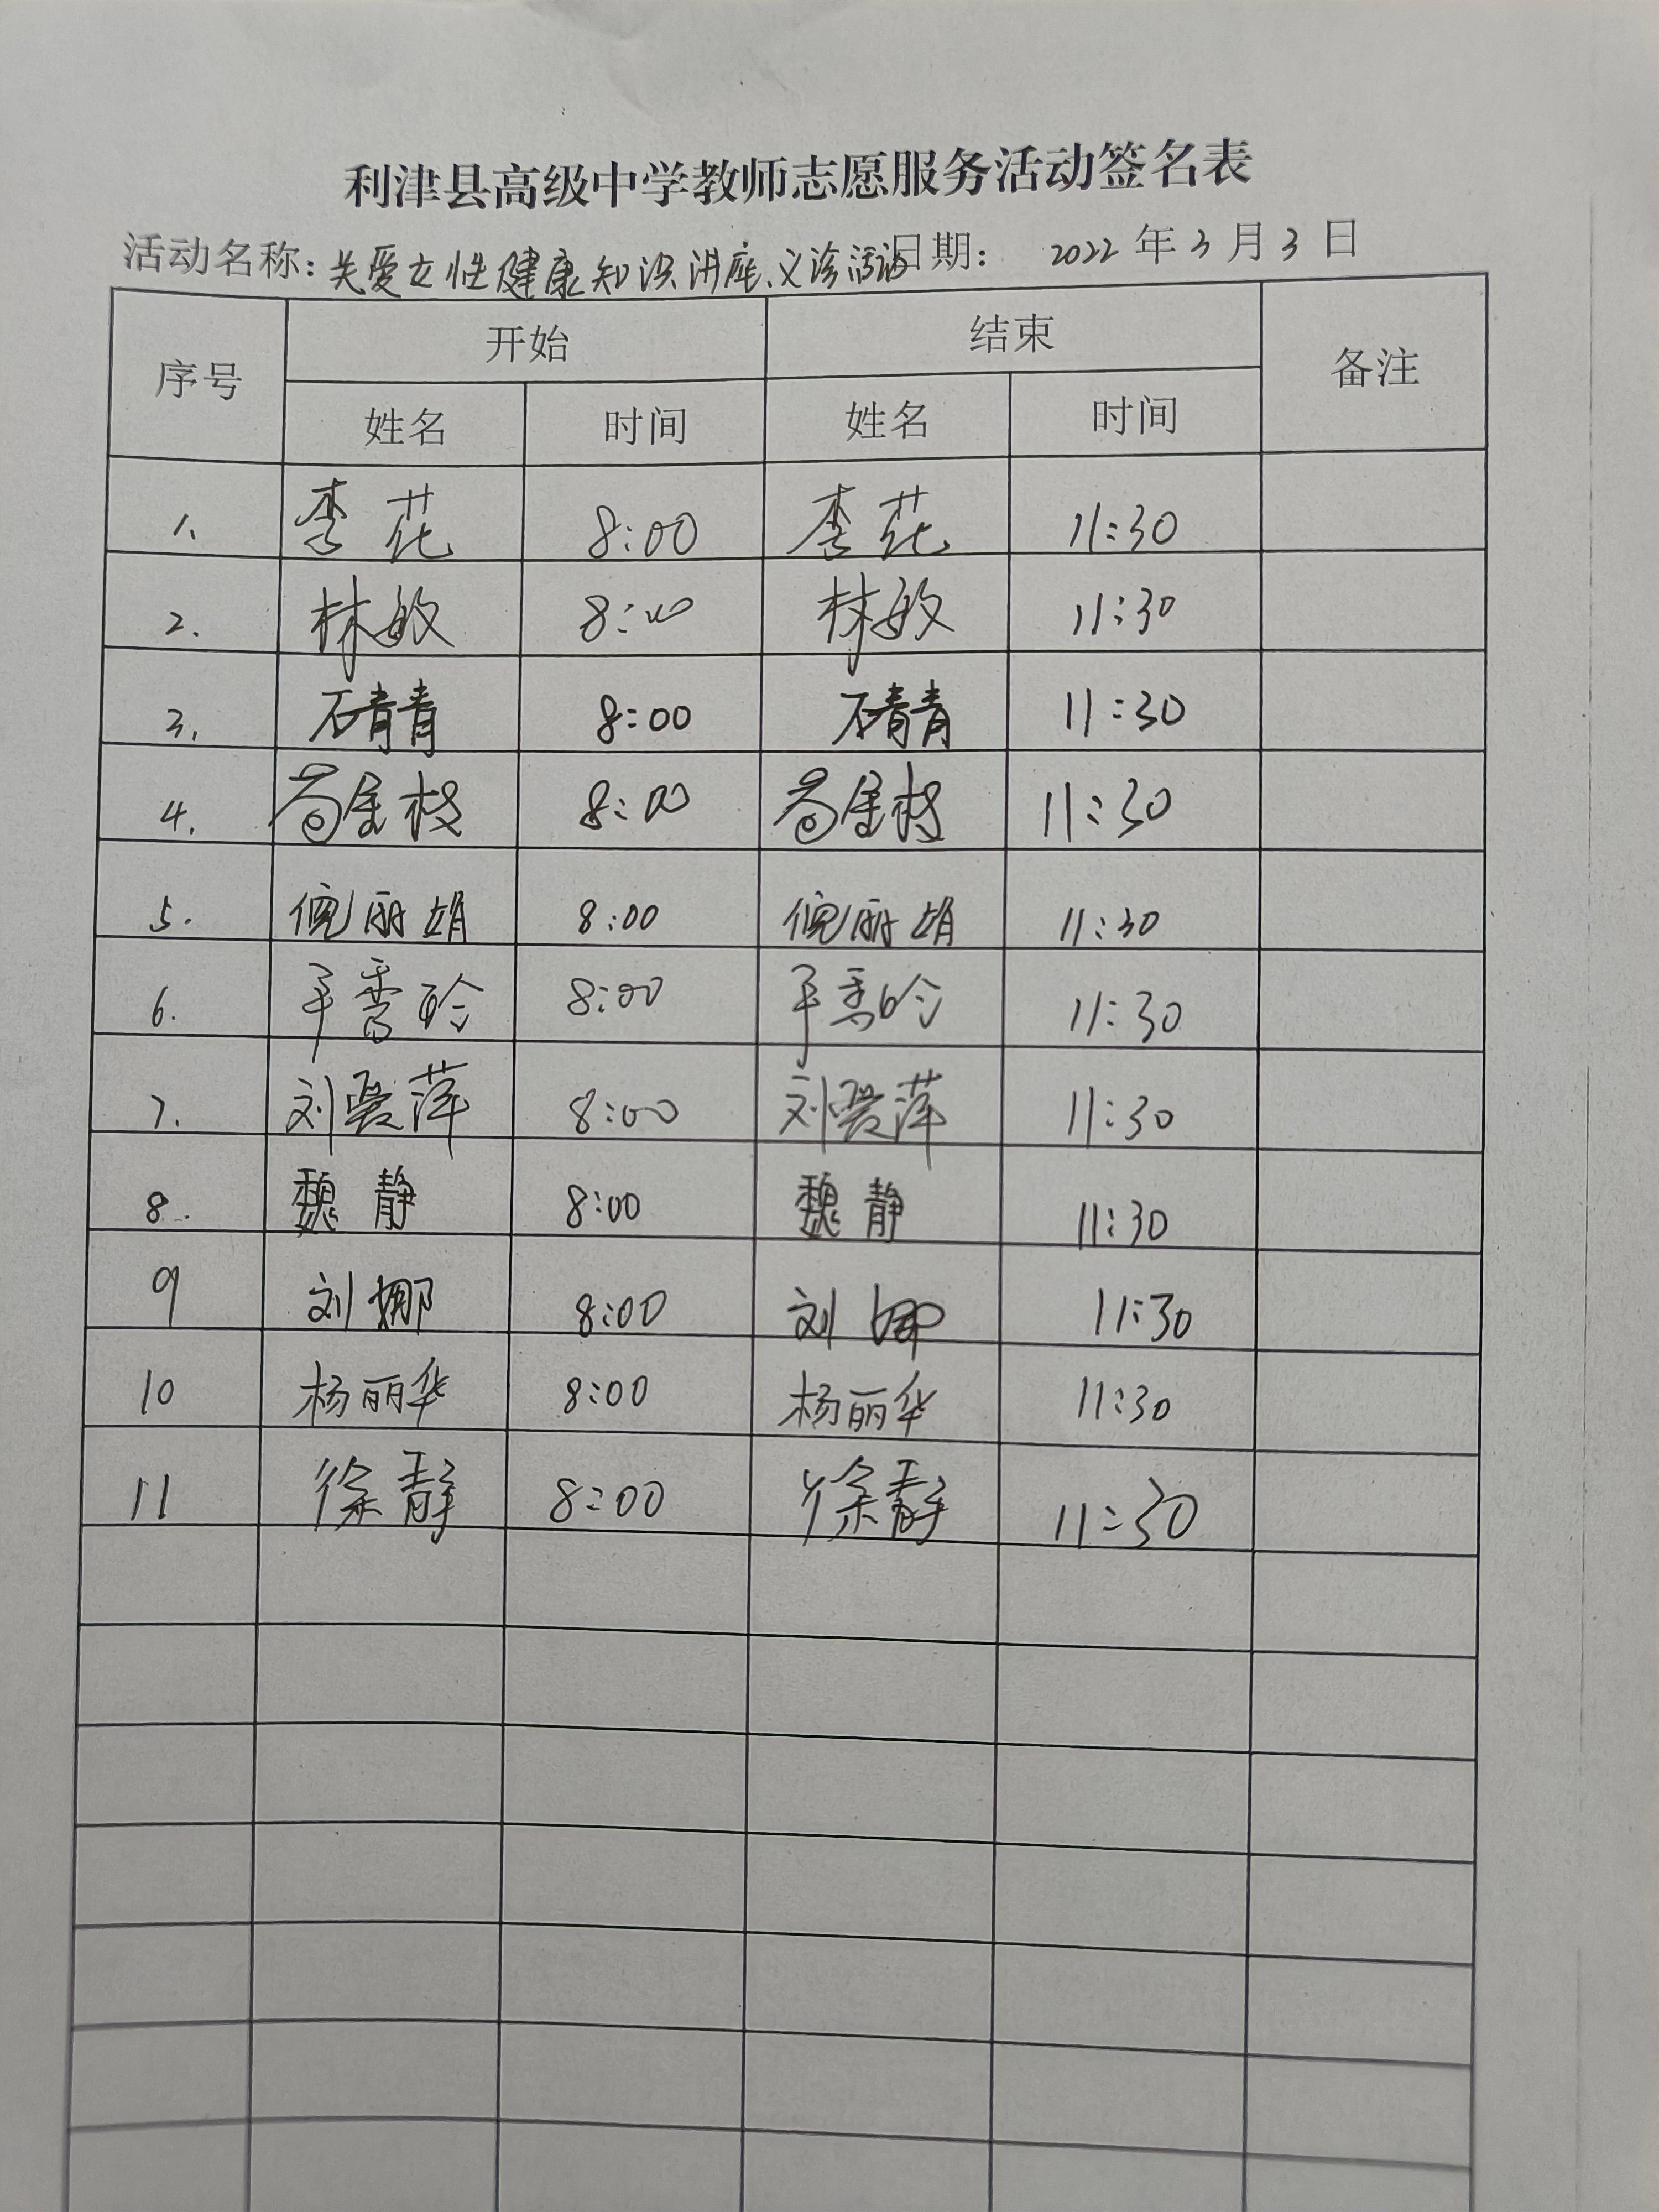 利津县高级中学教师志愿服务活动签名表
活动名称：关爱女性健康知识讲座、义诊活动 日期： 2022 年 3 月 3 日
序号 开始 结束 备注
姓名 时间 姓名 时间
1、 李花 8:00 李花 11:30
2. 林敏 8:00 林敏 11:30
3. 石青青 8:00 石青青 11:30
4. 8:00 11:30
5. 倪丽娟 8:00 倪丽娟 11:30
6. 8:00 11:30
7. 刘爱萍 8:00 刘爱萍 11:30
8. 魏静 8:00 魏静 11:30
9 刘娜 8:00 刘娜 11:30
10 杨丽华 8:00 杨丽华 11:30
11 徐静 8:00 徐静 11:30